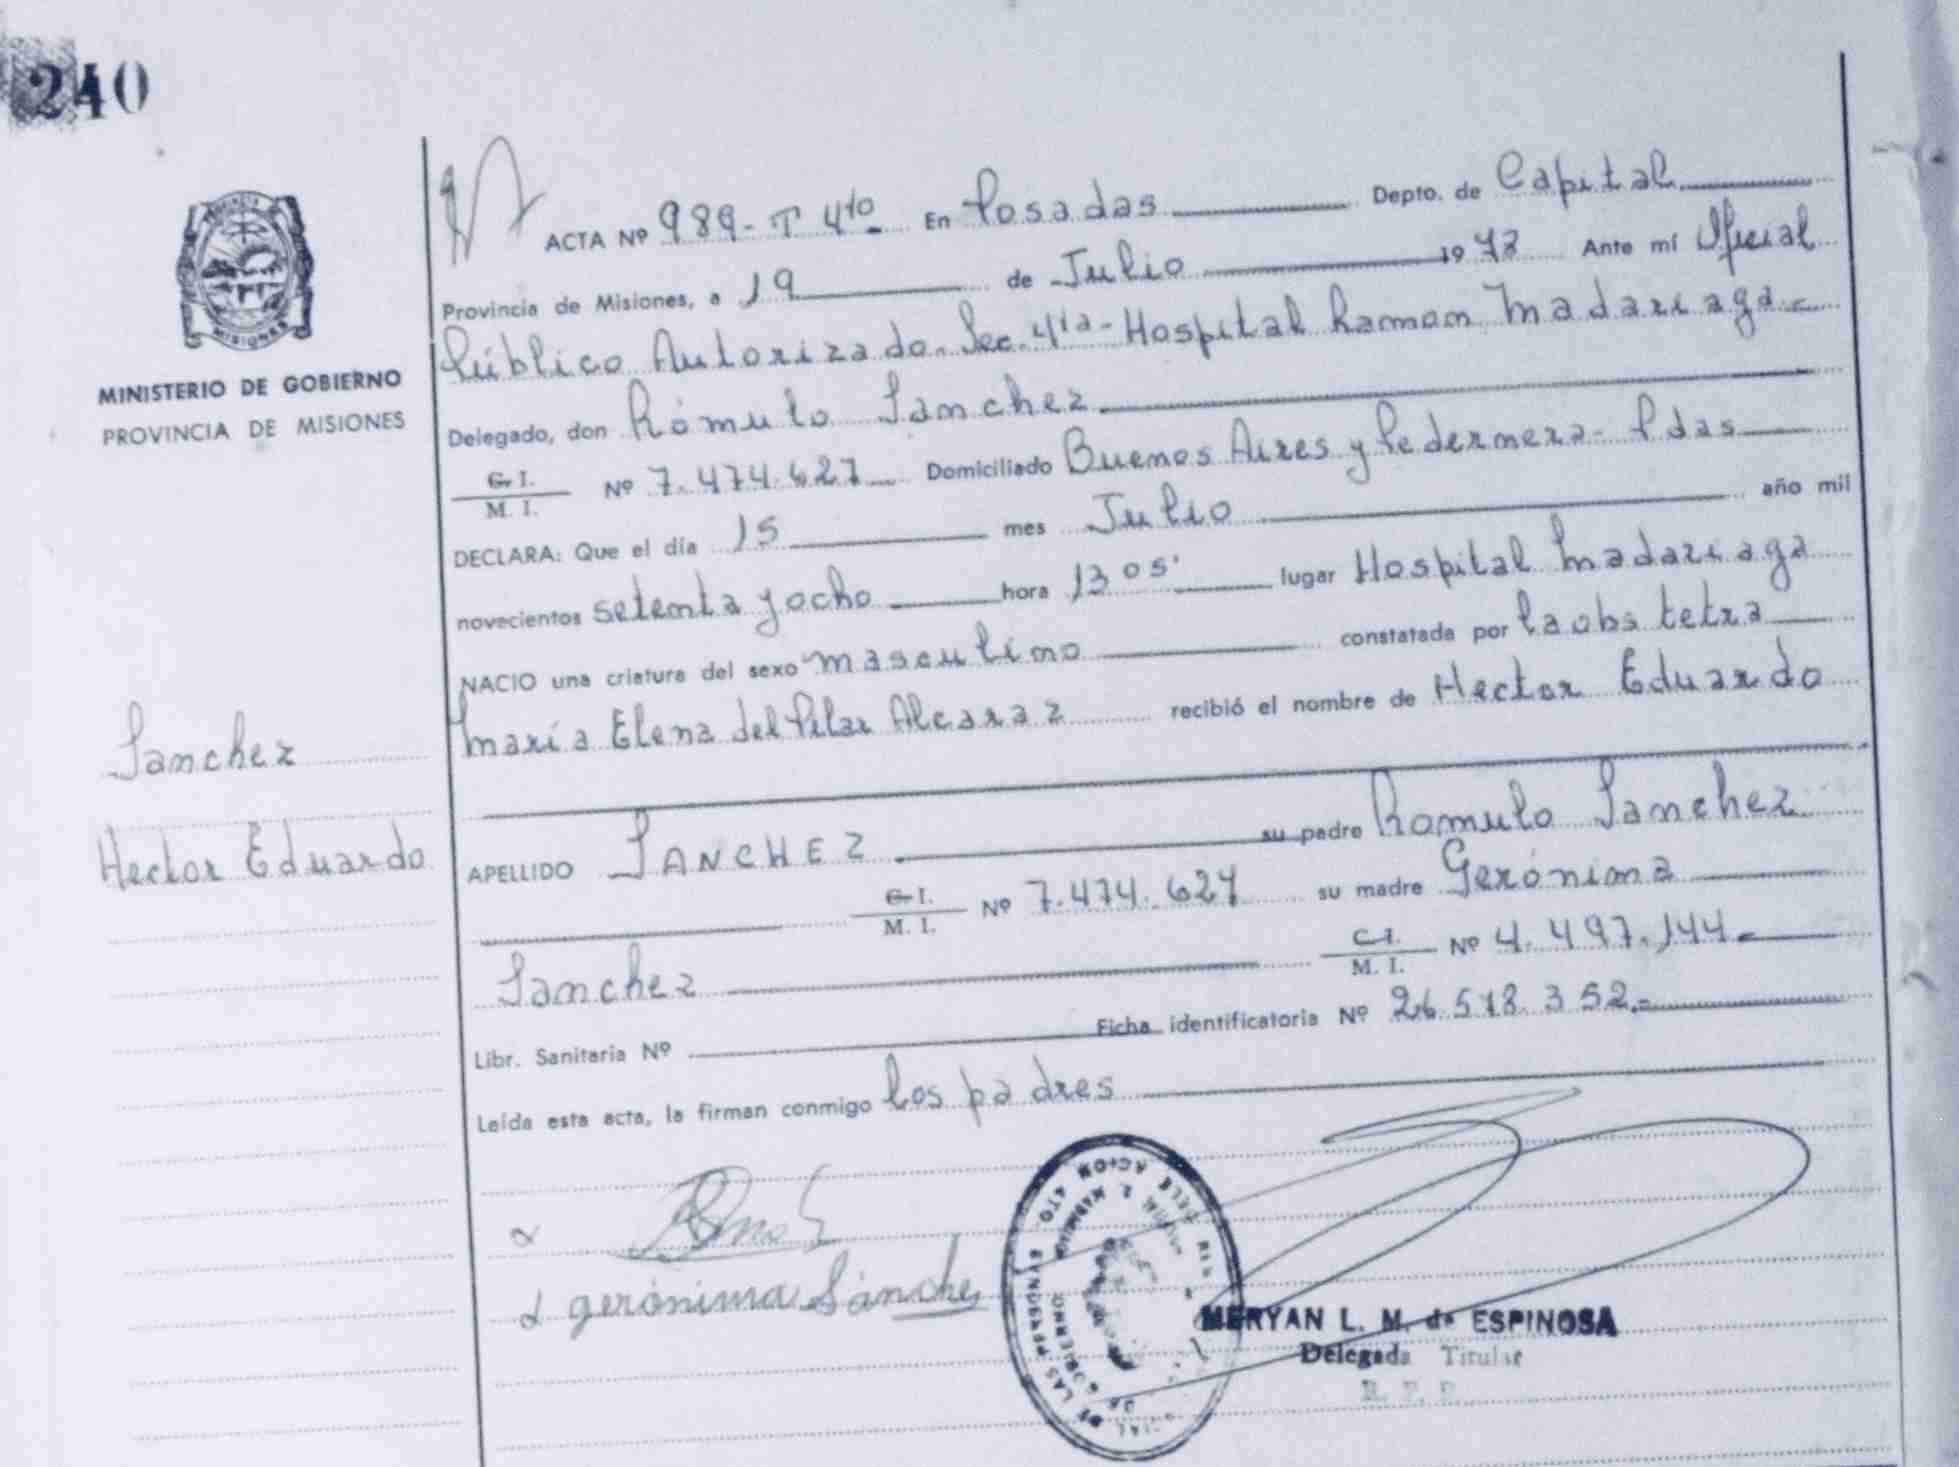 240
MINISTERIO DE GOBIERNO
PROVINCIA DE MISIONES
ACTA Nº 989-T 4to En Posadas Depto. de Capital
Provincia de Misiones, a 19 de Julio 1978 Ante mí Oficial
Público Autorizado. Sec. 4ta- Hospital Ramon Madariaga-
Delegado, don Rómulo Sanchez
C. I. / M. I. Nº 7.474.627 Domiciliado Buenos Aires y Pedernera- Pdas
DECLARA: Que el día 15 mes Julio año mil
novecientos setenta y ocho hora 13 05' lugar Hospital Madariaga
NACIO una criatura del sexo masculino constatada por la obstetra
María Elena del Pilar Alcaraz recibió el nombre de Hector Eduardo
Sanchez
Hector Eduardo
APELLIDO SANCHEZ su padre Romulo Sanchez
C. I. / M. I. Nº 7.474.627 su madre Gerónima
Sanchez C. I. / M. I. Nº 4.497.144-
Libr. Sanitaria Nº Ficha identificatoria Nº 26 518 352.-
Leída esta acta, la firman conmigo los padres
gerónima Sánche
MERYAN L. M. de ESPINOSA
Delegada Titular